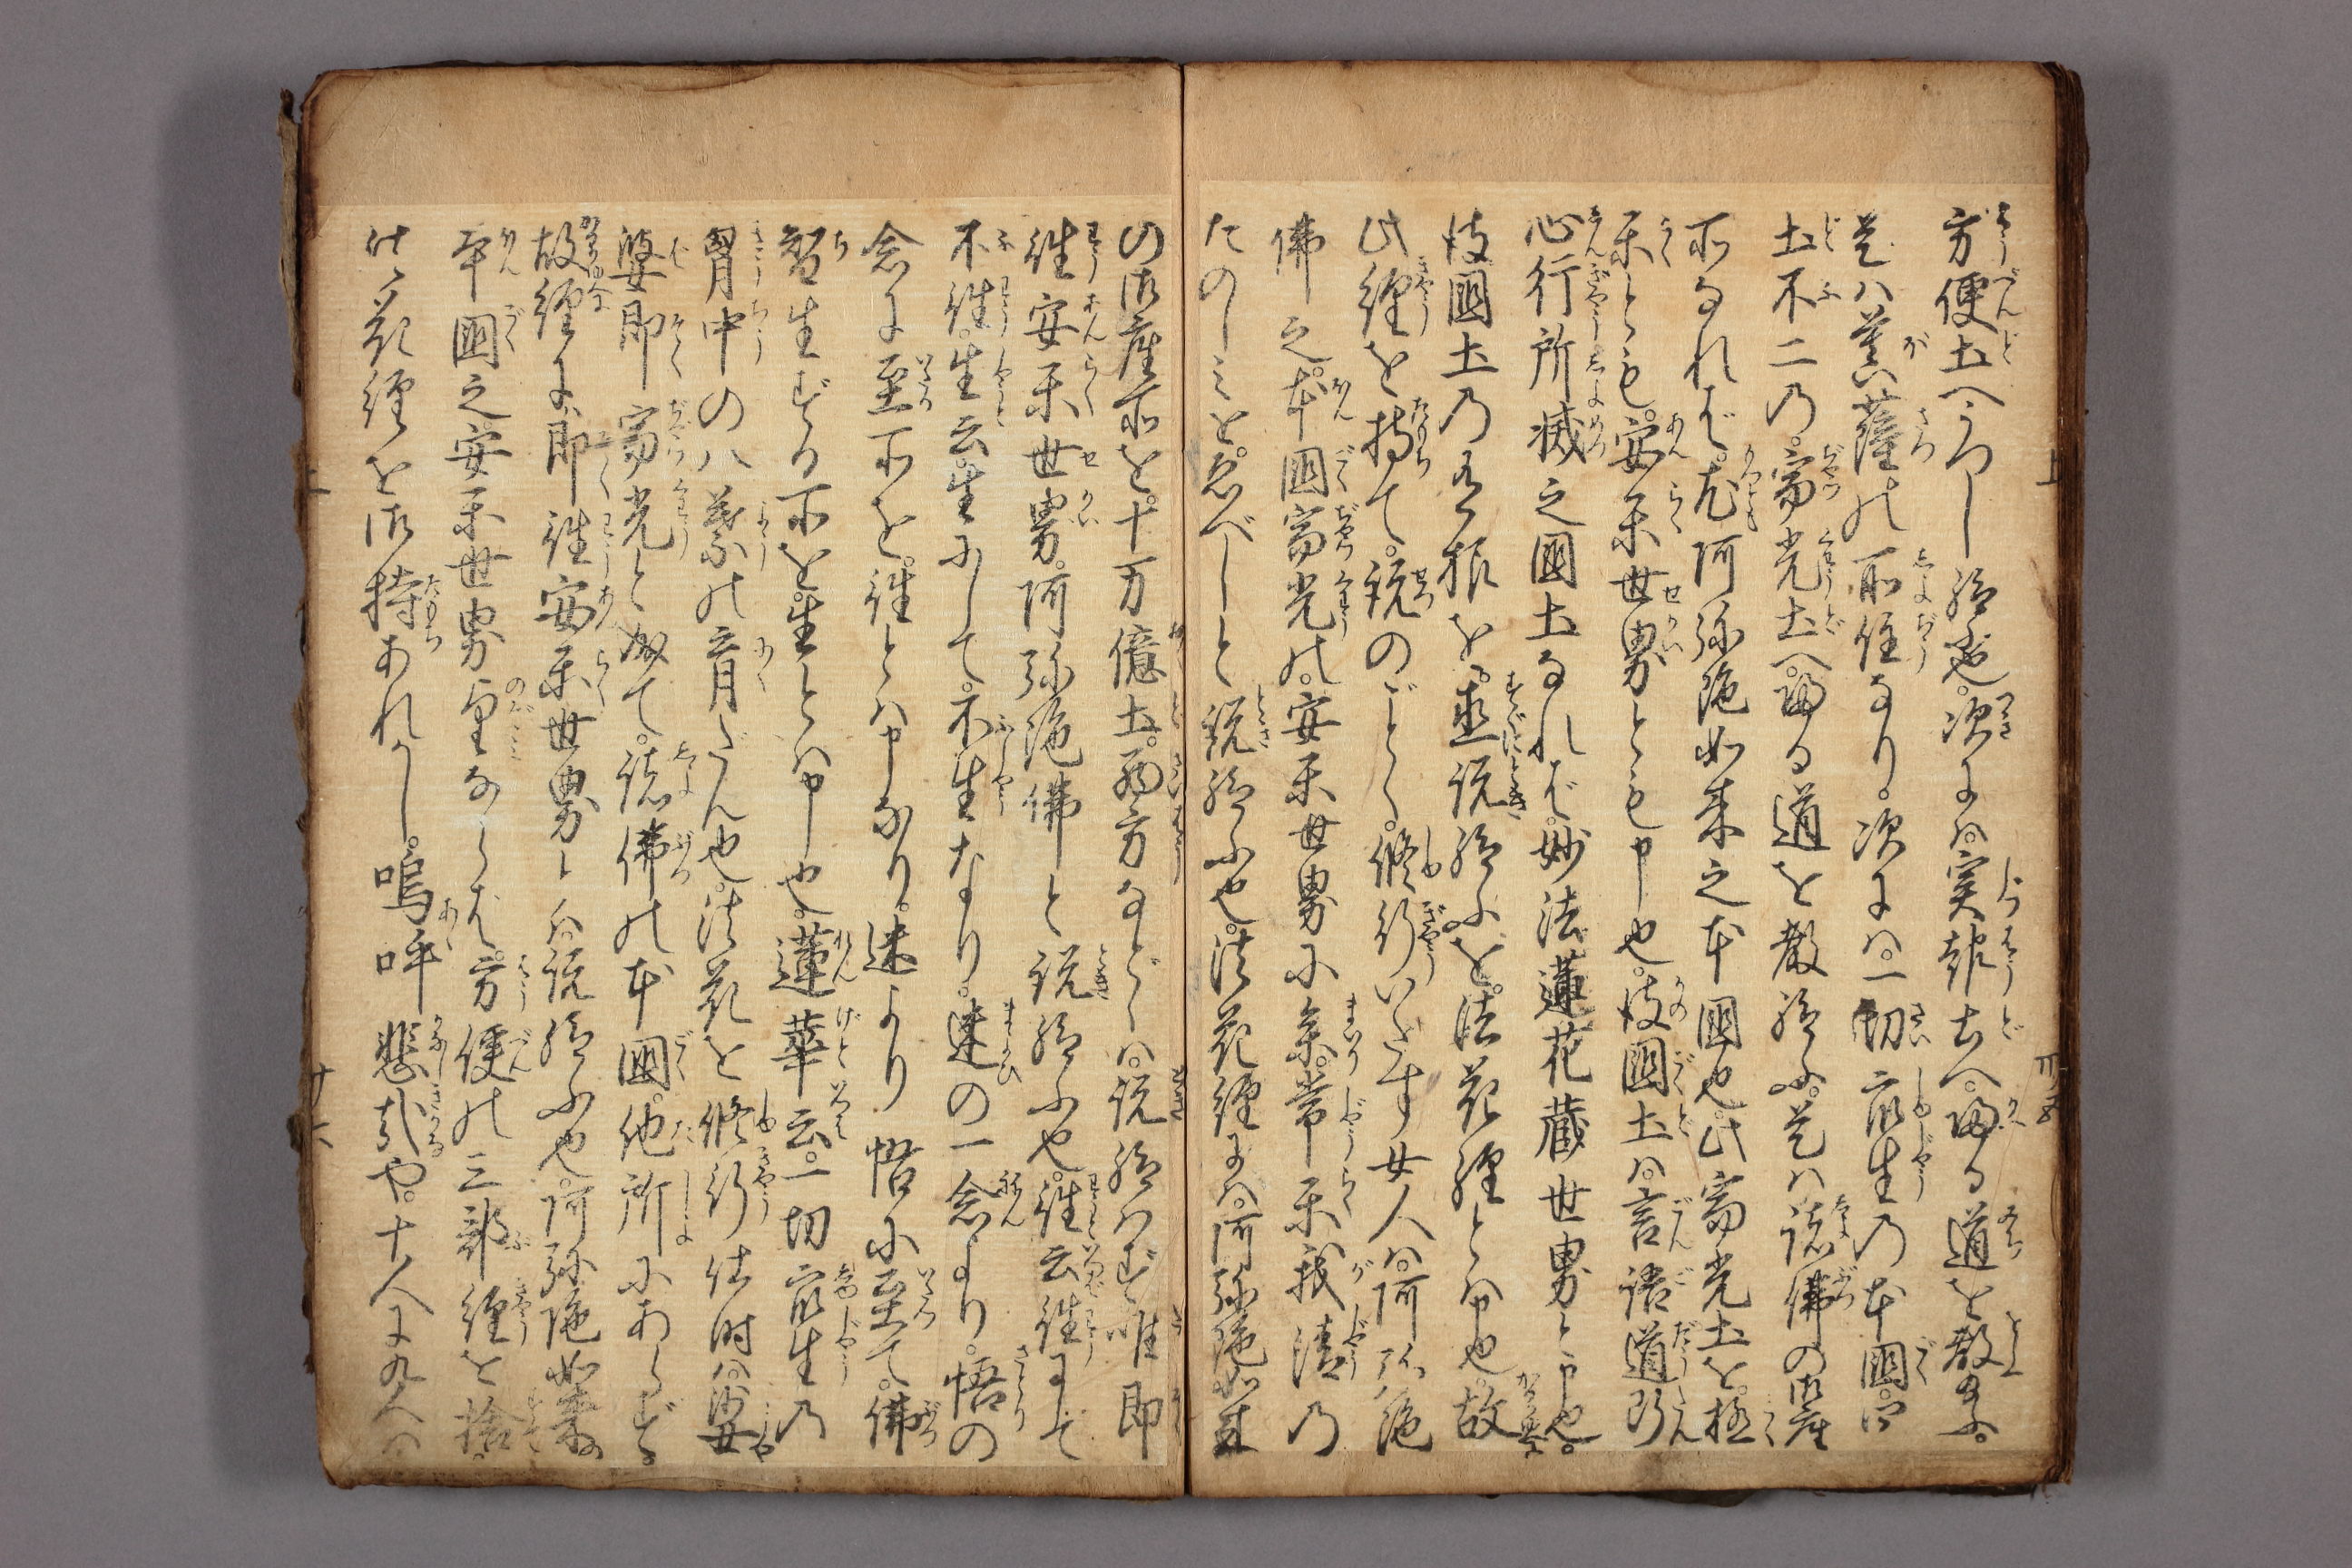 方便土へうつし給也。次には。実報土へ。帰る道を教給ふ。
是は菩薩の所住なり。次には。一切衆生の本国。四
土不二の。寂光土へ。帰る道を教給ふ。是は諸仏の御座
所なれば。尤阿弥陀如来之本国也。此寂光土を。極
楽とも。安楽世界とも申也。彼国土は。言語道断
心行所滅之国土なれば。妙法蓮花蔵世界と申也。
彼国土の有根を。直説給ふを。法花経とは申也。故
此経を持て。説のごとく。修行いたす女人は。阿弥陀
仏之。本国寂光の。安楽世界に参。常楽我浄の
たのしみを。忽べしと説給ふ也。法花経には。阿弥陀如来
の御座所を。十万億土。西方などゝは。説給はず。唯即
往安楽世界。阿弥陀仏と説給ふ也。往云往にして
不往。生云。生にして。不生なり。迷の一念より。悟の
念に至所を。往とは申なり。迷より悟に至て。仏
智生ずる所を。生とは申也。蓮華云。一切衆生の
胸中の八葉の育だん也。法花を修行仕時は。娑
婆即寂光と成て。諸仏の本国。他所にあらず。
故経に。即往安楽世界とは説給ふ也。阿弥陀如来の
本国之。安楽世界望ならば。方便の三部経を捨。
此花経を御持あれかし。嗚呼悲哉や。十人に九人は